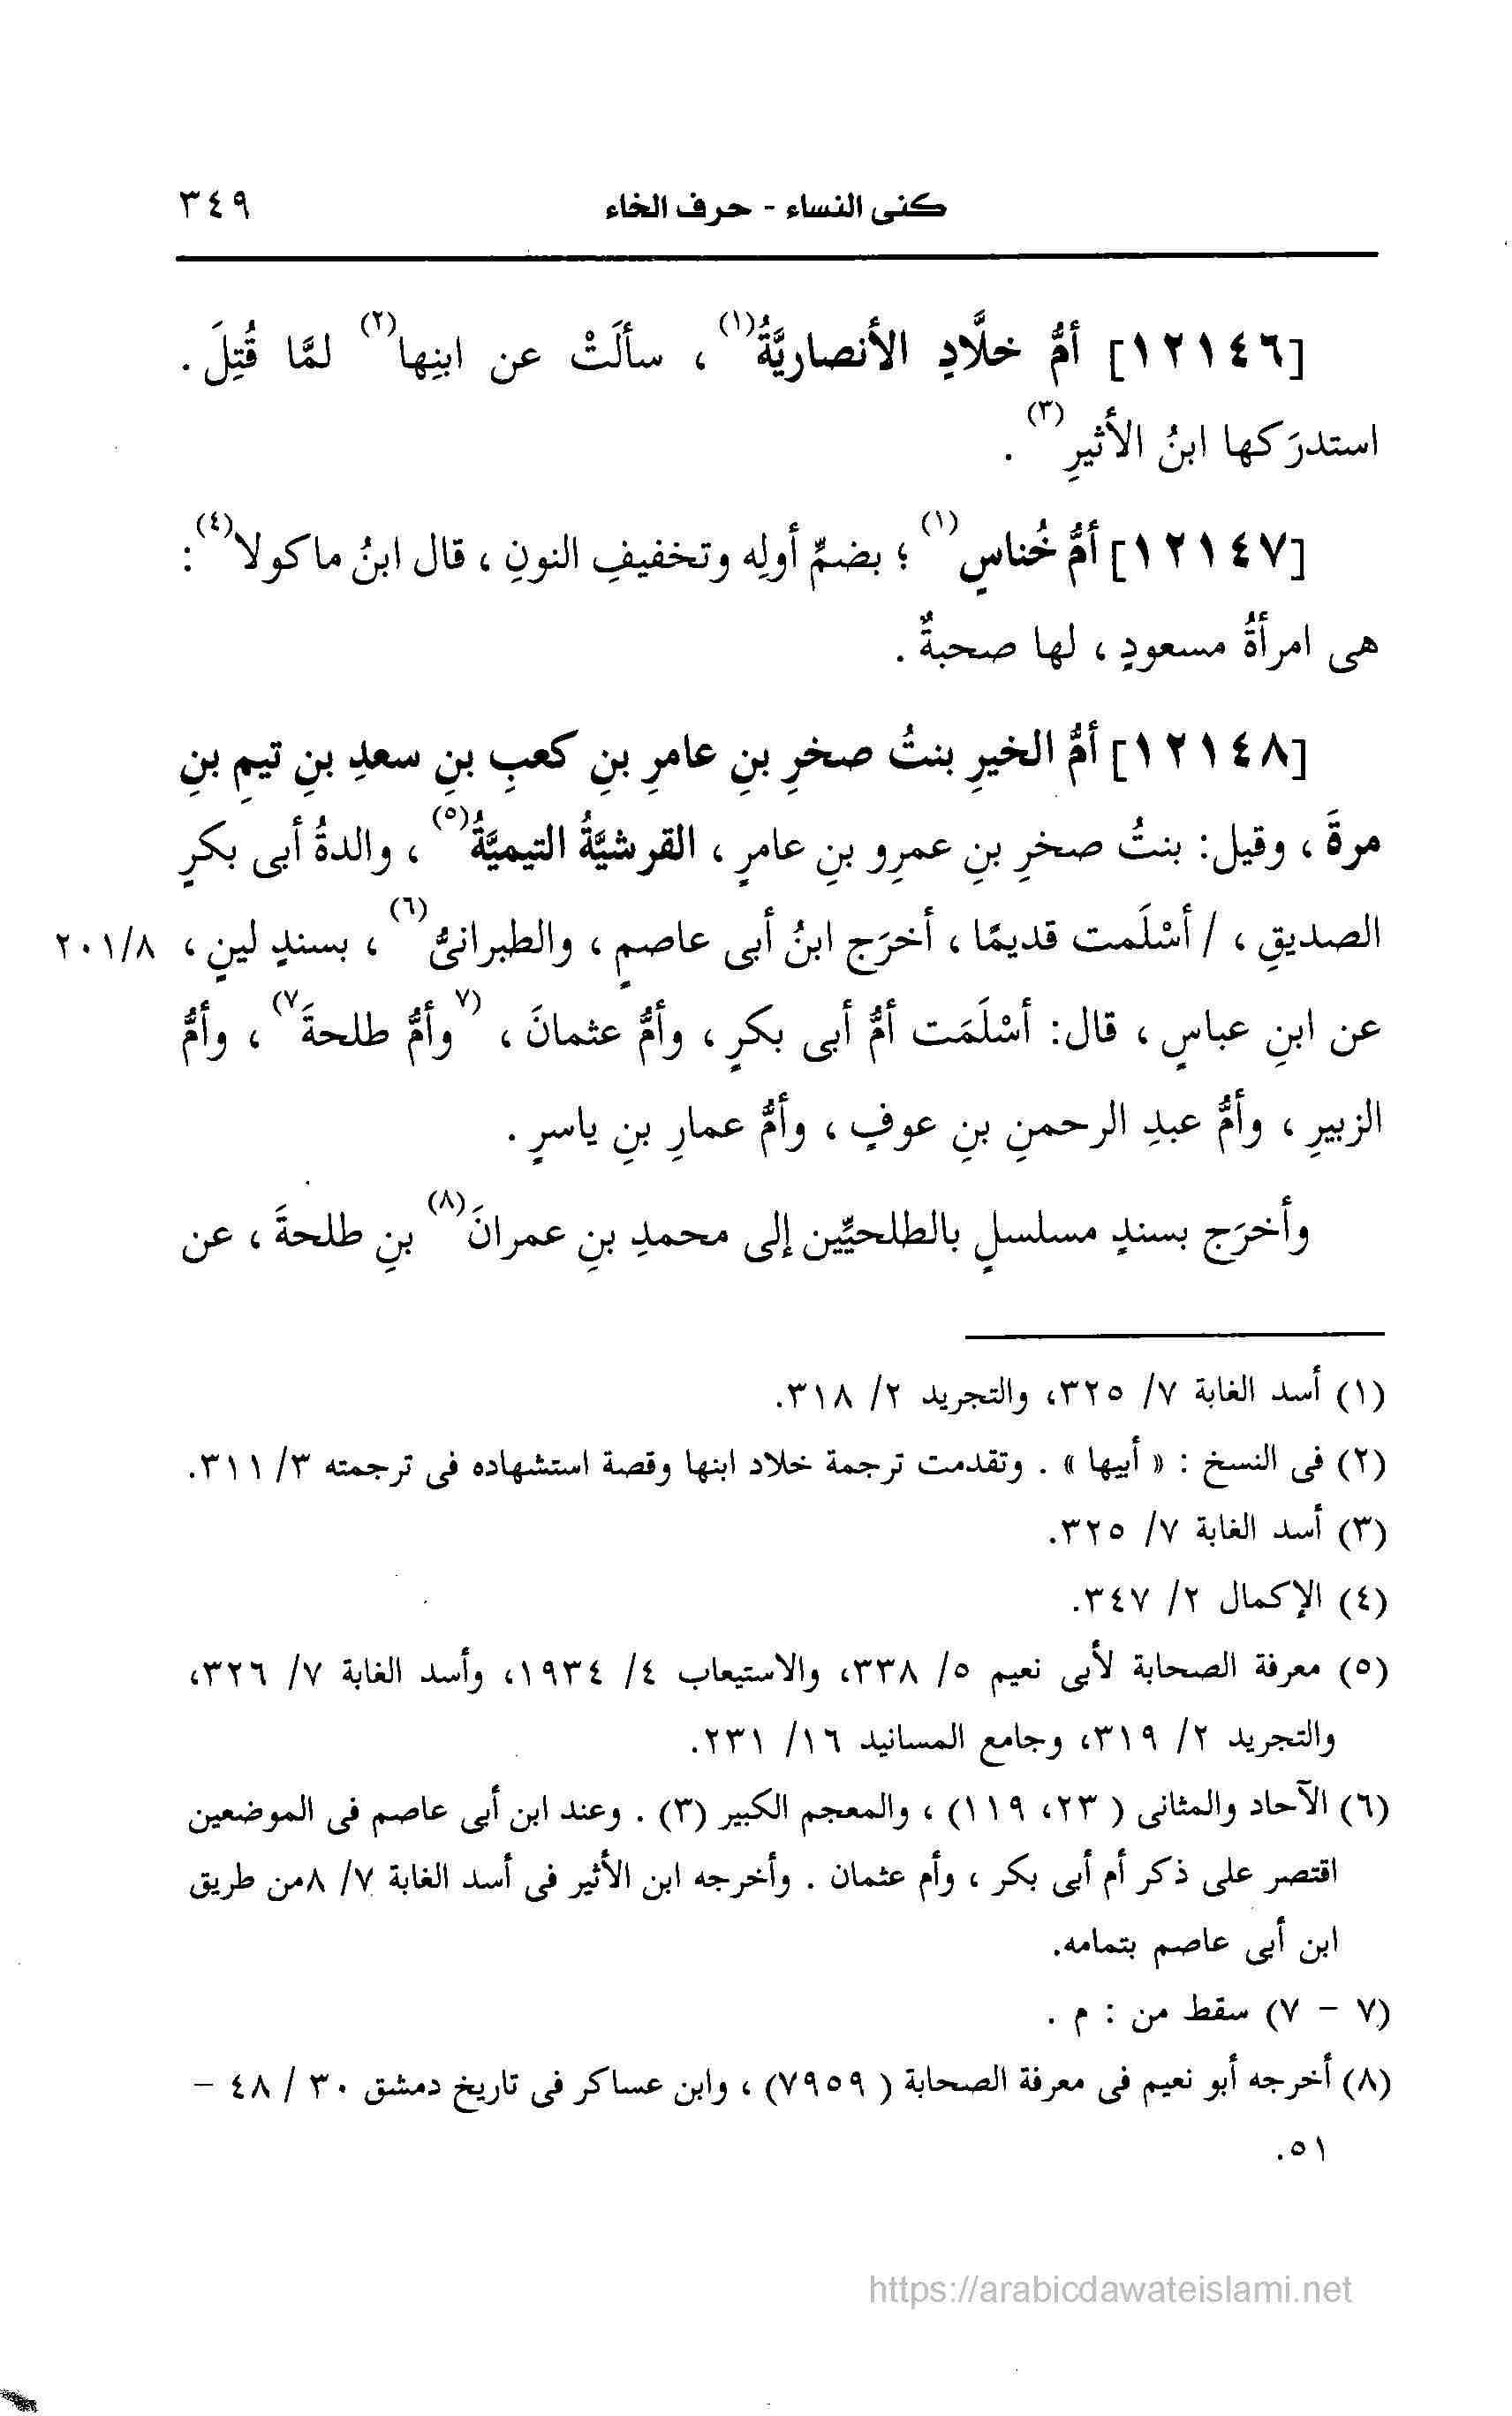 كنى النساء - حرف الخاء ٣٤٩
[١٢١٤٦] أمُّ خلَّادٍ الأنصاريَّةُ(١) ، سألَتْ عن ابنِها(٢) لمَّا قُتِلَ .
استدرَكها ابنُ الأثيرِ(٣) .
[١٢١٤٧] أمُّ خُناسٍ(١) ؛ بضمِّ أولِه وتخفيفِ النونِ ، قال ابنُ ماكولا(٤) :
هى امرأةُ مسعودٍ ، لها صحبةٌ .
[١٢١٤٨] أمُّ الخيرِ بنتُ صخرِ بنِ عامرِ بنِ كعبِ بنِ سعدِ بنِ تيمِ بنِ
مرةَ ، وقيل: بنتُ صخرِ بنِ عمرِو بنِ عامرٍ ، القرشيَّةُ التيميَّةُ(٥) ، والدةُ أبى بكرٍ
الصديقِ ، / أسْلَمت قديمًا ، أخرَج ابنُ أبى عاصمٍ ، والطبرانىُّ(٦) ، بسندٍ لينٍ ، ٢٠١/٨
عن ابنِ عباسٍ ، قال: أسْلَمَت أمُّ أبى بكرٍ ، وأمُّ عثمانَ ، (٧وأمُّ طلحةَ٧) ، وأمُّ
الزبيرِ ، وأمُّ عبدِ الرحمنِ بنِ عوفٍ ، وأمُّ عمارِ بنِ ياسرٍ .
وأخرَج بسندٍ مسلسلٍ بالطلحيِّين إلى محمدِ بنِ عمرانَ(٨) بنِ طلحةَ ، عن
(١) أسد الغابة ٧/ ٣٢٥، والتجريد ٢/ ٣١٨.
(٢) فى النسخ : « أبيها » . وتقدمت ترجمة خلاد ابنها وقصة استشهاده فى ترجمته ٣/ ٣١١.
(٣) أسد الغابة ٧/ ٣٢٥.
(٤) الإكمال ٢/ ٣٤٧.
(٥) معرفة الصحابة لأبى نعيم ٥/ ٣٣٨، والاستيعاب ٤/ ١٩٣٤، وأسد الغابة ٧/ ٣٢٦،
والتجريد ٢/ ٣١٩، وجامع المسانيد ١٦/ ٢٣١.
(٦) الآحاد والمثانى ( ٢٣، ١١٩) ، والمعجم الكبير (٣) . وعند ابن أبى عاصم فى الموضعين
اقتصر على ذكر أم أبى بكر ، وأم عثمان . وأخرجه ابن الأثير فى أسد الغابة ٧/ ٨من طريق
ابن أبى عاصم بتمامه.
(٧ - ٧) سقط من : م .
(٨) أخرجه أبو نعيم فى معرفة الصحابة ( ٧٩٥٩) ، وابن عساكر فى تاريخ دمشق ٣٠ / ٤٨ -
٥١.
https://arabicdawateislami.net